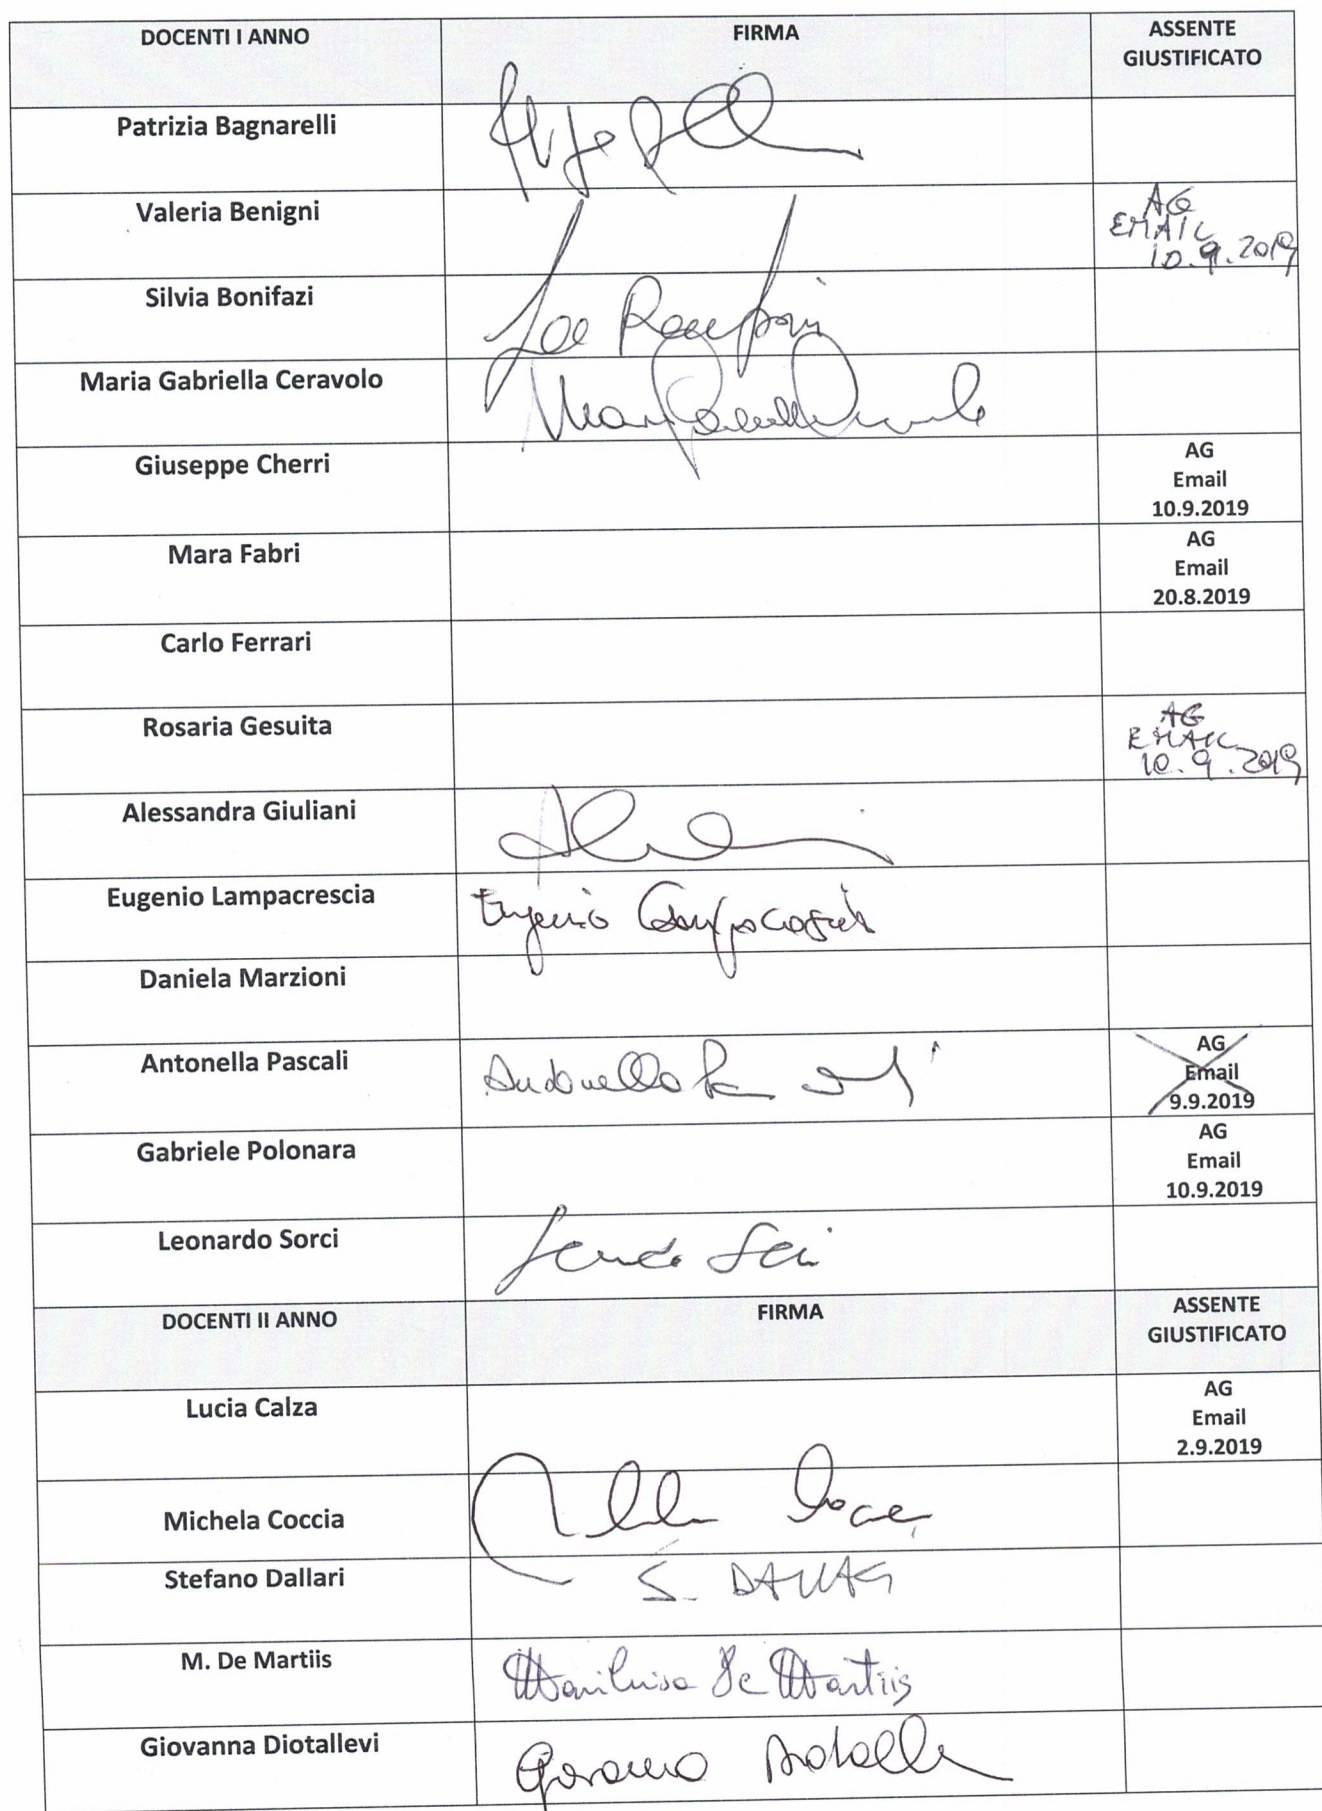 DOCENTI I ANNO FIRMA ASSENTE
GIUSTIFICATO
Patrizia Bagnarelli
Valeria Benigni AG
EMAIL
10.9.2019
Silvia Bonifazi
Maria Gabriella Ceravolo
Giuseppe Cherri AG
Email
10.9.2019
Mara Fabri AG
Email
20.8.2019
Carlo Ferrari
Rosaria Gesuita AG
EMAIL
10.9.2019
Alessandra Giuliani
Eugenio Lampacrescia Eugenio
Daniela Marzioni
Antonella Pascali Antonella AG
Email
9.9.2019
Gabriele Polonara AG
Email
10.9.2019
Leonardo Sorci
DOCENTI II ANNO FIRMA ASSENTE
GIUSTIFICATO
Lucia Calza AG
Email
2.9.2019
Michela Coccia
Stefano Dallari S. DALLARI
M. De Martiis Mariluisa De Martiis
Giovanna Diotallevi